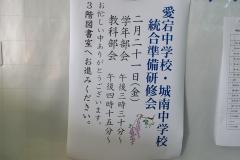 愛宕中学校・城南中学校
統合準備研修会
二月二十一日(金)
学年部会 午後三時三十分～
教科部会 午後四時十五分～
お忙しい中ありがとうございます。
3階図書室へお進みください。